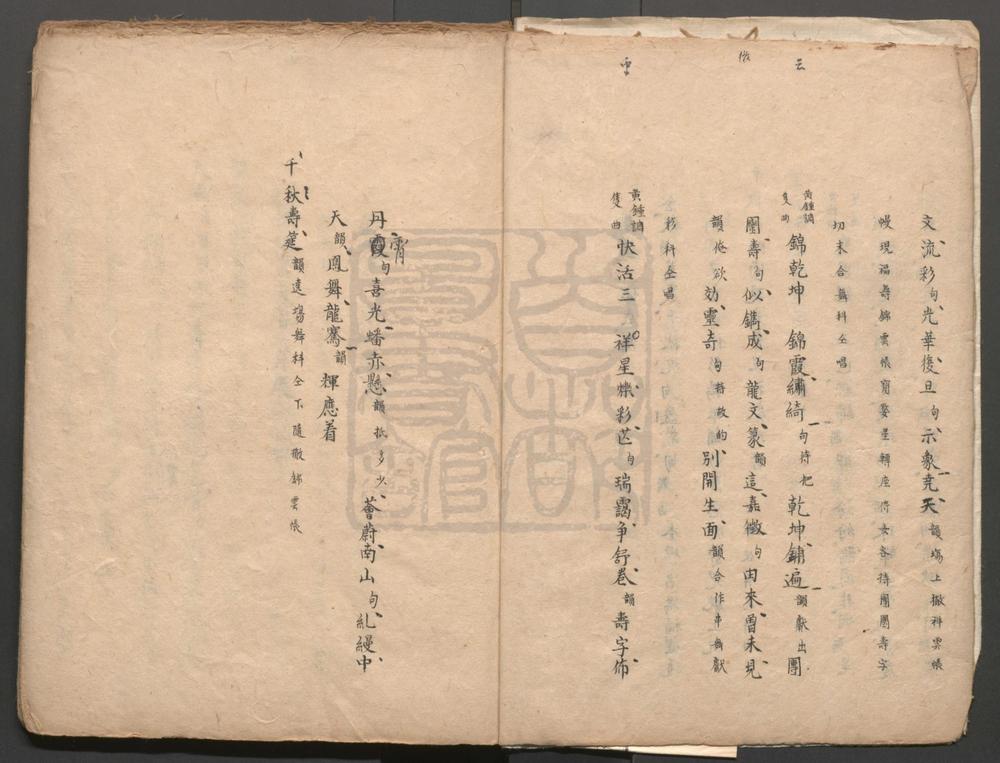 文流彩句光華復旦句示象堯天韻場上撤祥雲帳
幔現福壽錦雲帳寶婺星轉座侍女各持團圞壽字
切末合舞科仝唱
黃鍾調
隻曲
錦乾坤 錦霞繡綺句持把乾坤鋪遍韻獻出團
圞壽句似鐫成句龍文篆韻這嘉徵句由來曾未見
韻俺欲効靈奇句特故的別開生面韻合作串舞獻
彩科仝唱
黃鍾調
隻曲
快活三 祥星爍彩芒句瑞靄爭舒卷韻壽字佈
丹霞句喜光蟠赤懸韻抵多少薈蔚南山句糺縵中
霄
天韻鳳舞龍騫韻輝應着
千秋壽筵韻遶場舞科仝下隨撤錦雲帳